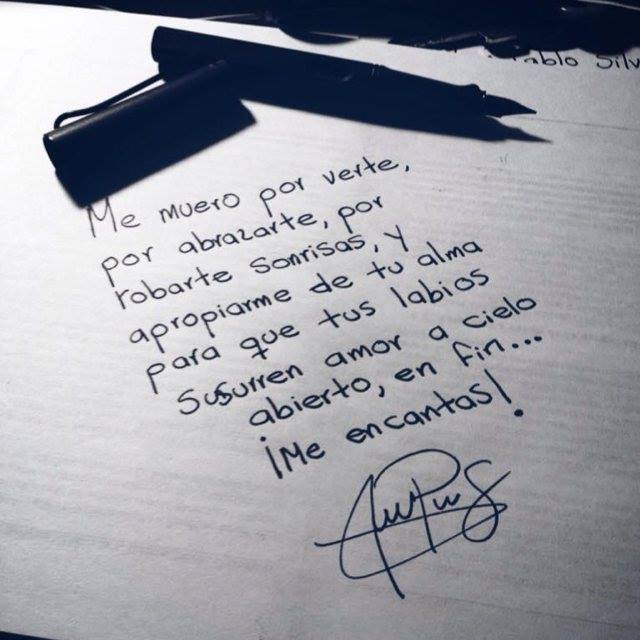 Pablo Silv
Me muero por verte,
por abrazarte, por
robarte sonrisas, y
apropiarme de tu alma
para que tus labios
susurren amor a cielo
abierto, en fin...
¡Me encantas!